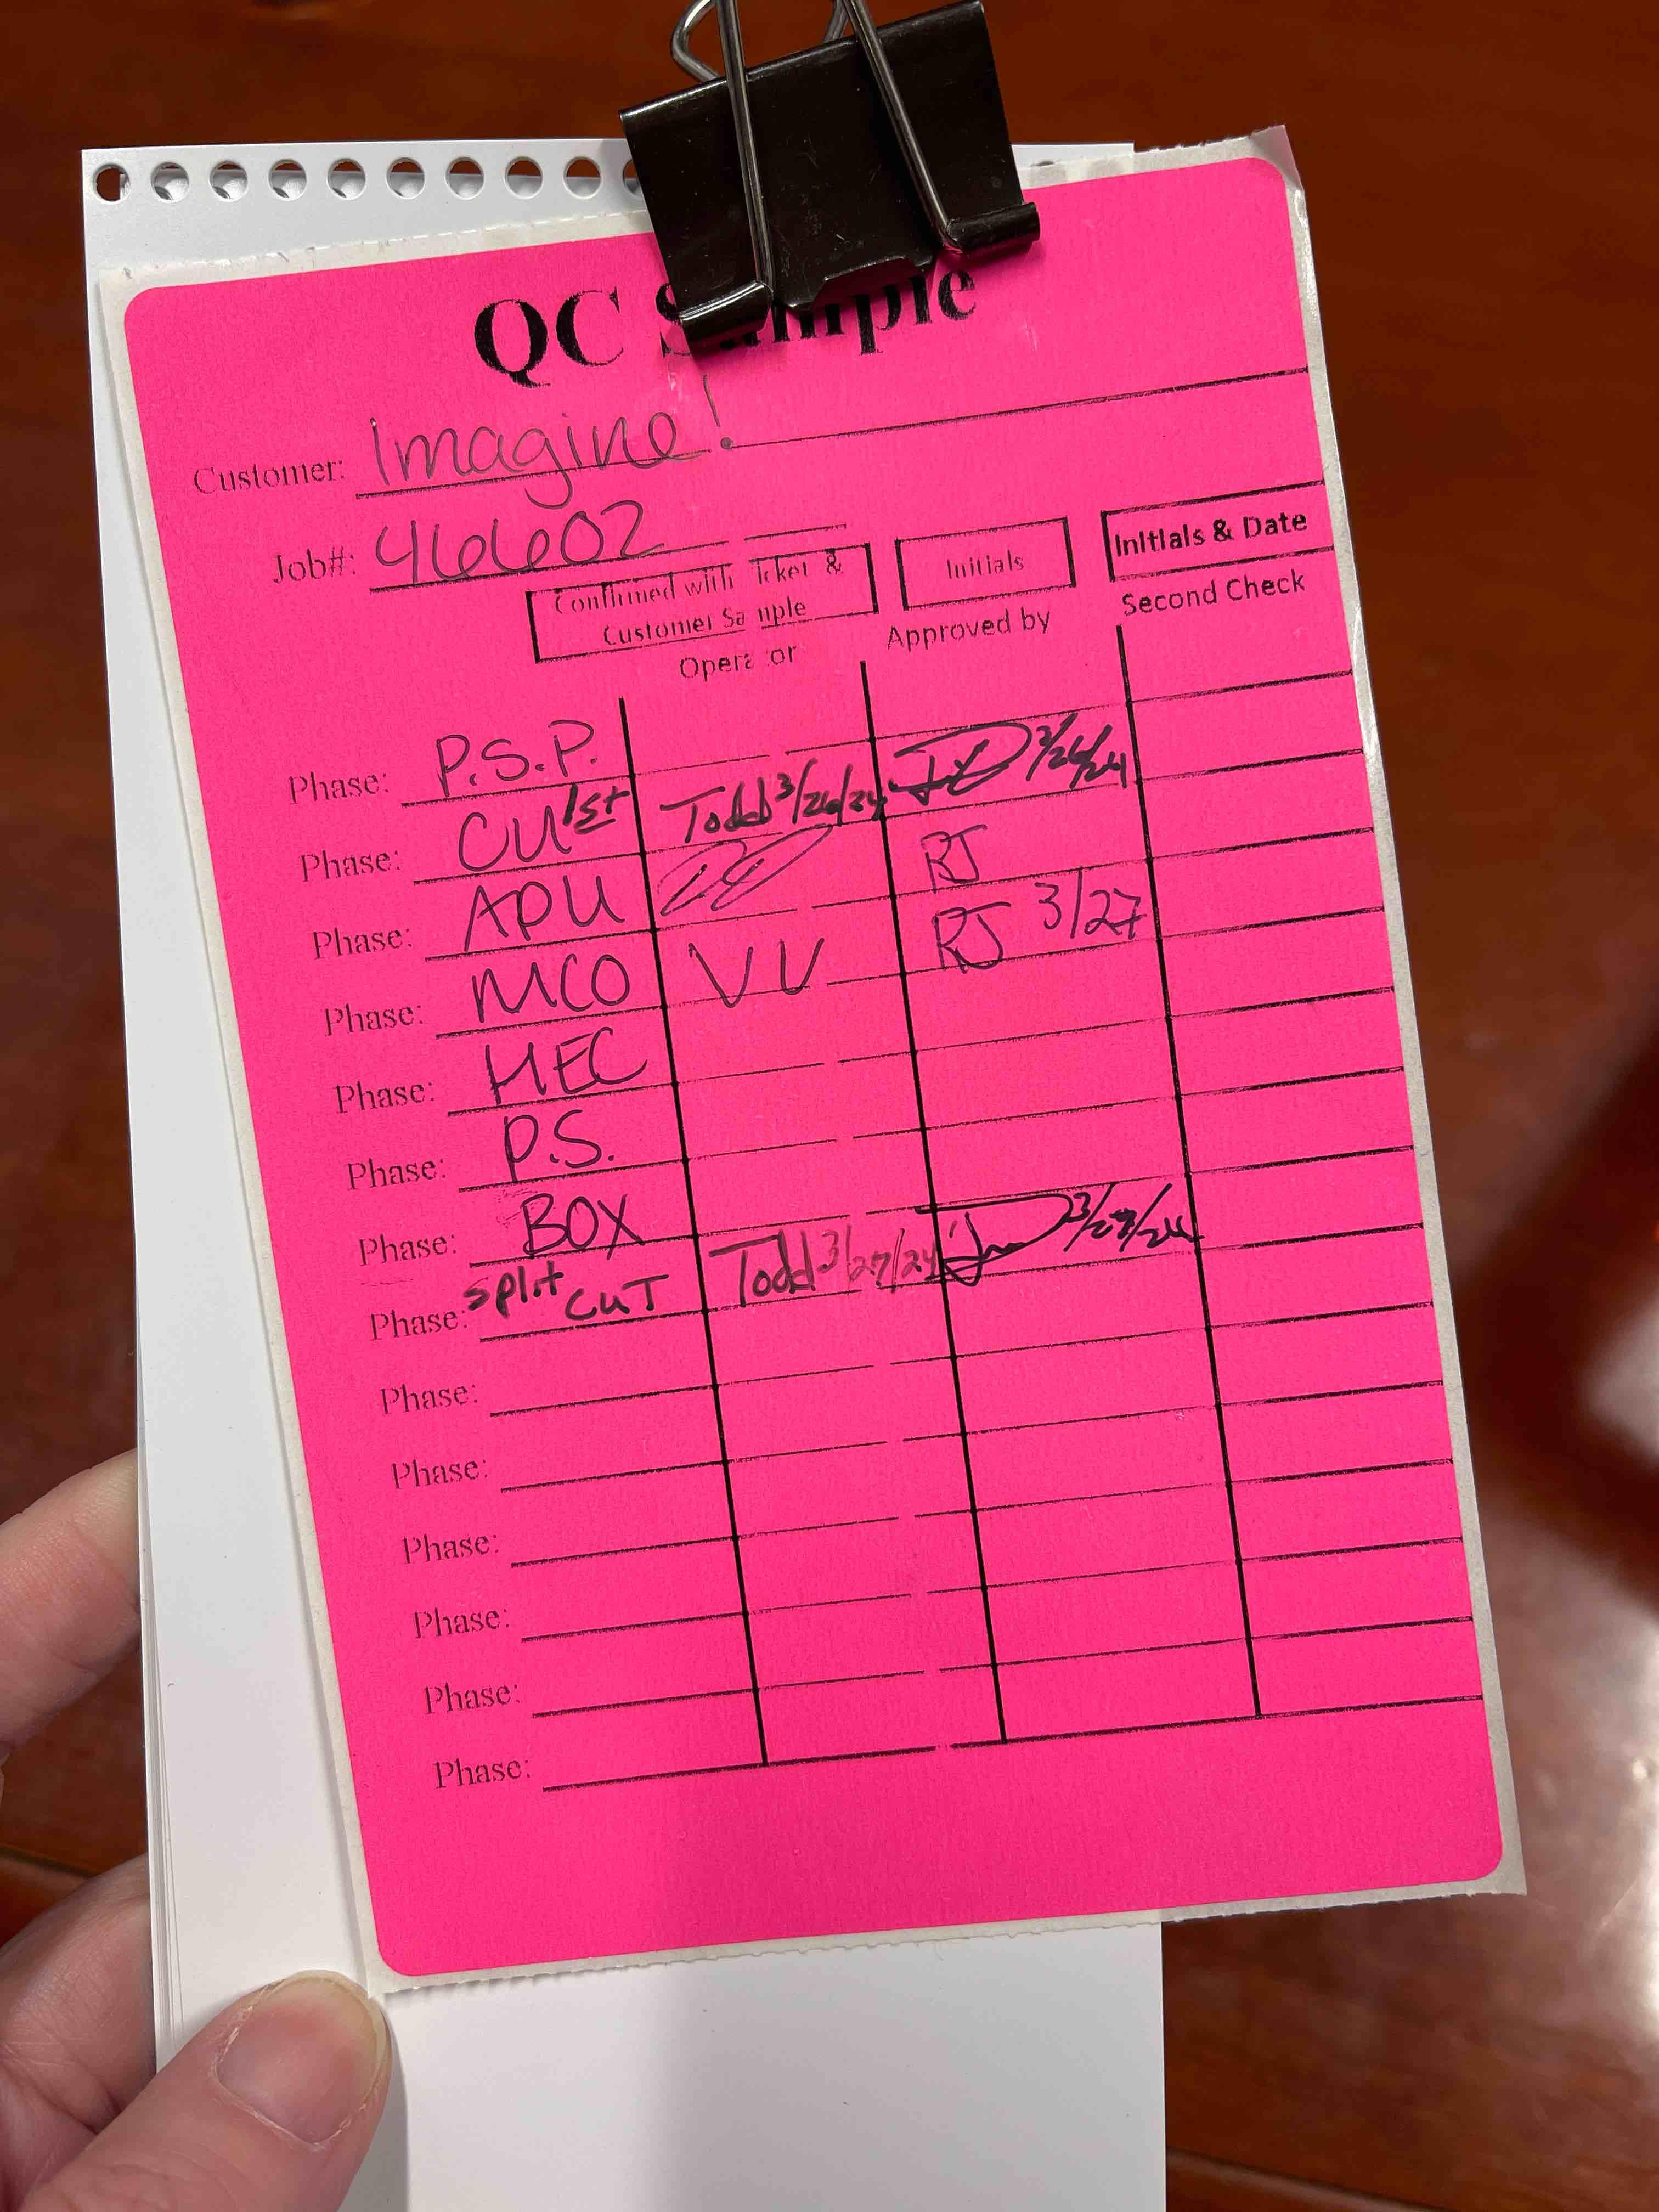 QC Sample
Customer: Imagine!
Job#: 46602
Confirmed with Ticket &
Customer Sample
Operator
Initials
Approved by
Initials & Date
Second Check
Phase: P.S.P.
Phase: CU 1st Todd 3/26/24 3/26/24
Phase: APU RJ
Phase: MCO VV RJ 3/27
Phase: HEC
Phase: P.S.
Phase: BOX
Phase: split CUT Todd 3/27/24 3/27/24
Phase:
Phase:
Phase:
Phase:
Phase:
Phase: